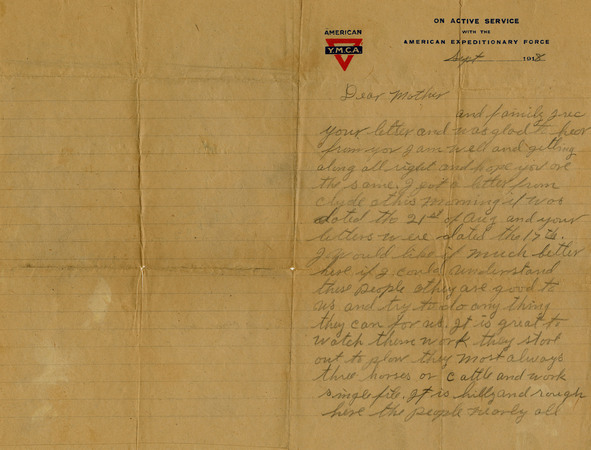 AMERICAN
Y.M.C.A.
ON ACTIVE SERVICE
WITH THE
AMERICAN EXPEDITIONARY FORCE
Sept 1918
Dear Mother
and family rec
your letter and was glad to hear
from you I am well and getting
along all right and hope you are
the same. I got a letter from
Clyde this morning it was
dated the 21st of Aug and your
letters were dated the 17th.
I would like it much better
here if I could understand
these people they are good to
us and try to do any thing
they can for us. It is great to
watch them work they start
out to plow they most always
three horses or cattle and work
single file. It is hilly and rough
here the people nearly all